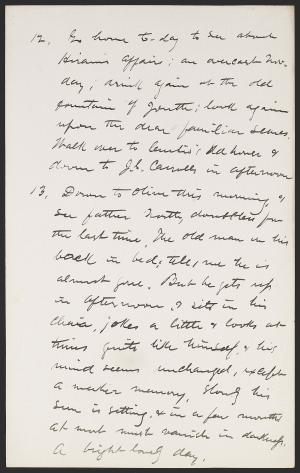 12. Go home to-day to see about
Hiram's affair; an overcast Nov.
day; drink again at the old
fountain of youth; look again
upon the dear familiar scenes.
Walk over to Curtis's old house &
down to J.C. Carroll's in afternoon
13. Down to Olive this morning &
see father North, doubtless for
the last time. The old man in his
back in bed, tells me he is
almost gone. But he gets up
in afternoon & sits in his
chair, jokes a little & looks at
things quite like himself, & his
mind seems unchanged, except
a weaker memory. Slowly his
sun is setting, & in a few months
at most must vanish in darkness.
A bright lovely day.